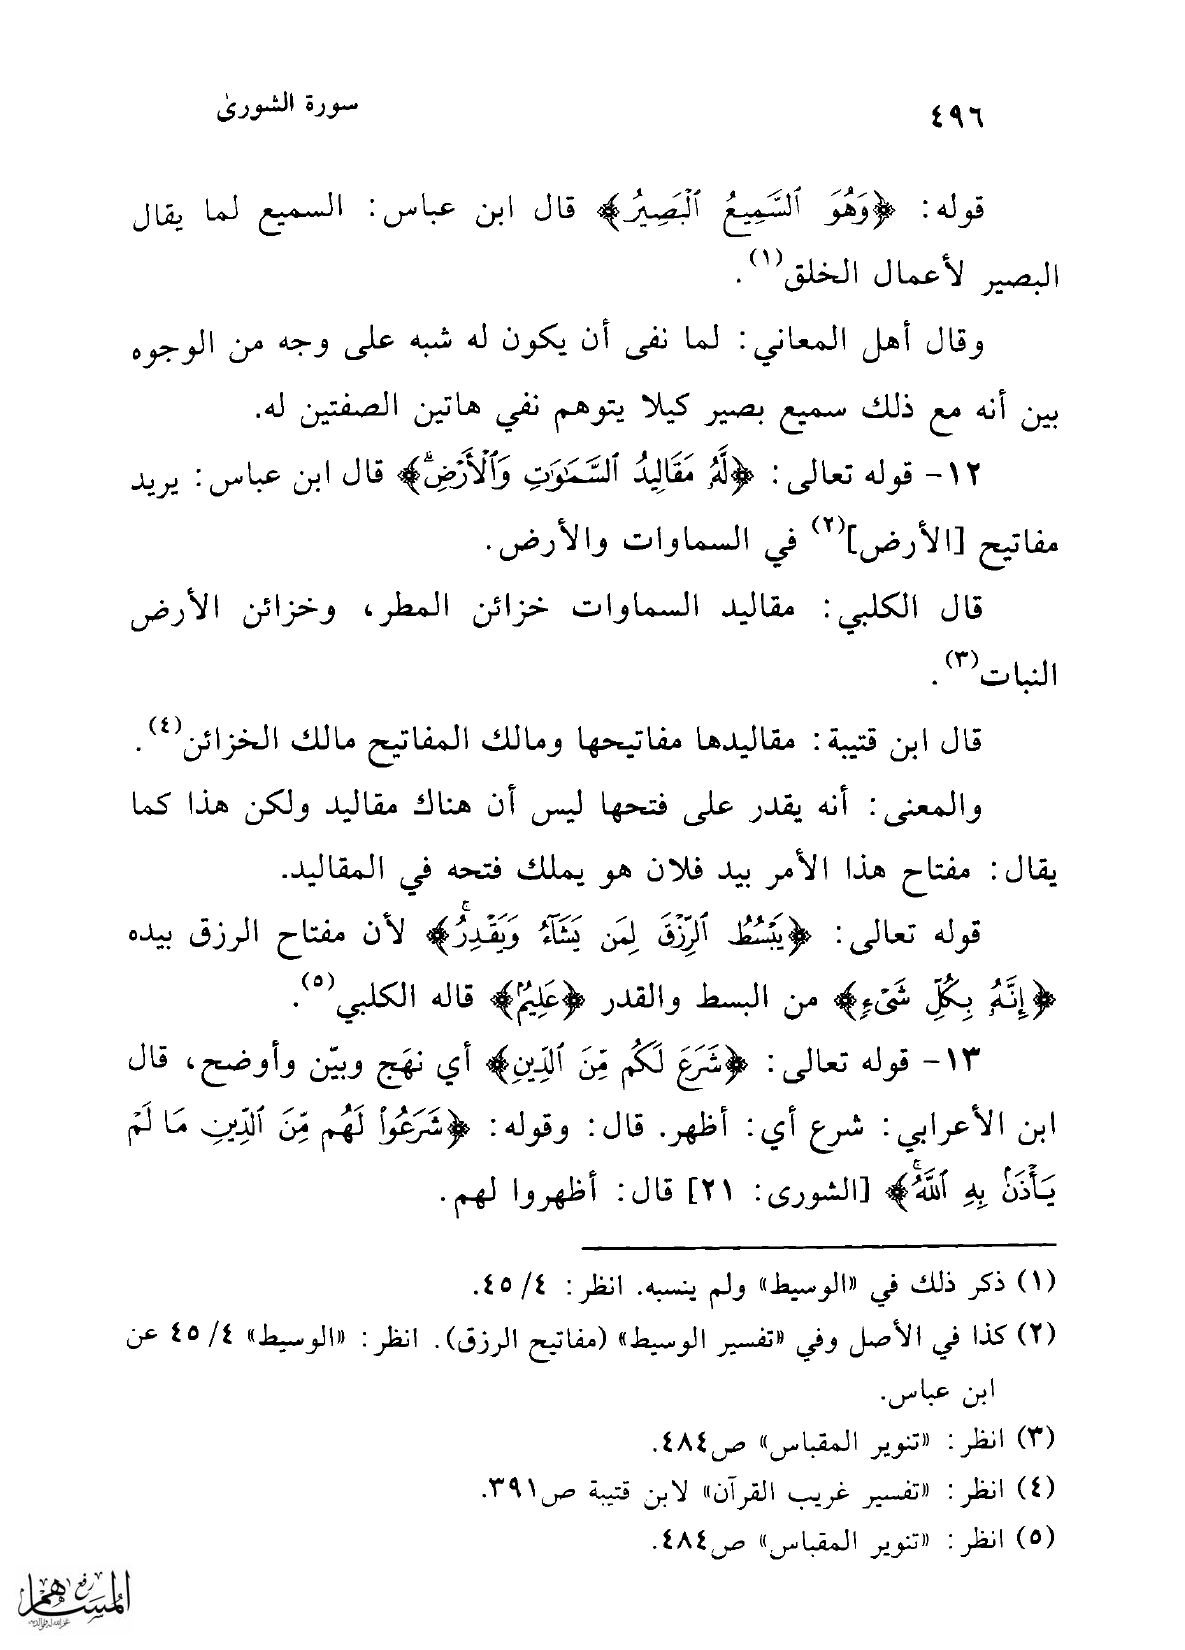 ٤٩٦
سورة الشورىٰ
قوله: ﴿وَهُوَ ٱلسَّمِيعُ ٱلۡبَصِيرُ﴾ قال ابن عباس: السميع لما يقال
البصير لأعمال الخلق(١).
وقال أهل المعاني: لما نفى أن يكون له شبه على وجه من الوجوه
بين أنه مع ذلك سميع بصير كيلا يتوهم نفي هاتين الصفتين له.
١٢- قوله تعالى: ﴿لَهُۥ مَقَالِيدُ ٱلسَّمَٰوَٰتِ وَٱلۡأَرۡضِۖ﴾ قال ابن عباس: يريد
مفاتيح [الأرض](٢) في السماوات والأرض.
قال الكلبي: مقاليد السماوات خزائن المطر، وخزائن الأرض
النبات(٣).
قال ابن قتيبة: مقاليدها مفاتيحها ومالك المفاتيح مالك الخزائن(٤).
والمعنى: أنه يقدر على فتحها ليس أن هناك مقاليد ولكن هذا كما
يقال: مفتاح هذا الأمر بيد فلان هو يملك فتحه في المقاليد.
قوله تعالى: ﴿يَبۡسُطُ ٱلرِّزۡقَ لِمَن يَشَآءُ وَيَقۡدِرُۚ﴾ لأن مفتاح الرزق بيده
﴿إِنَّهُۥ بِكُلِّ شَيۡءٍ﴾ من البسط والقدر ﴿عَلِيمٞ﴾ قاله الكلبي(٥).
١٣- قوله تعالى: ﴿شَرَعَ لَكُم مِّنَ ٱلدِّينِ﴾ أي نهَج وبيّن وأوضح، قال
ابن الأعرابي: شرع أي: أظهر. قال: وقوله: ﴿شَرَعُواْ لَهُم مِّنَ ٱلدِّينِ مَا لَمۡ
يَأۡذَنۢ بِهِ ٱللَّهُۚ﴾ [الشورى: ٢١] قال: أظهروا لهم.
(١) ذكر ذلك في «الوسيط» ولم ينسبه. انظر: ٤/ ٤٥.
(٢) كذا في الأصل وفي «تفسير الوسيط» (مفاتيح الرزق). انظر: «الوسيط» ٤/ ٤٥ عن
ابن عباس.
(٣) انظر: «تنوير المقباس» ص٤٨٤.
(٤) انظر: «تفسير غريب القرآن» لابن قتيبة ص٣٩١.
(٥) انظر: «تنوير المقباس» ص٤٨٤.